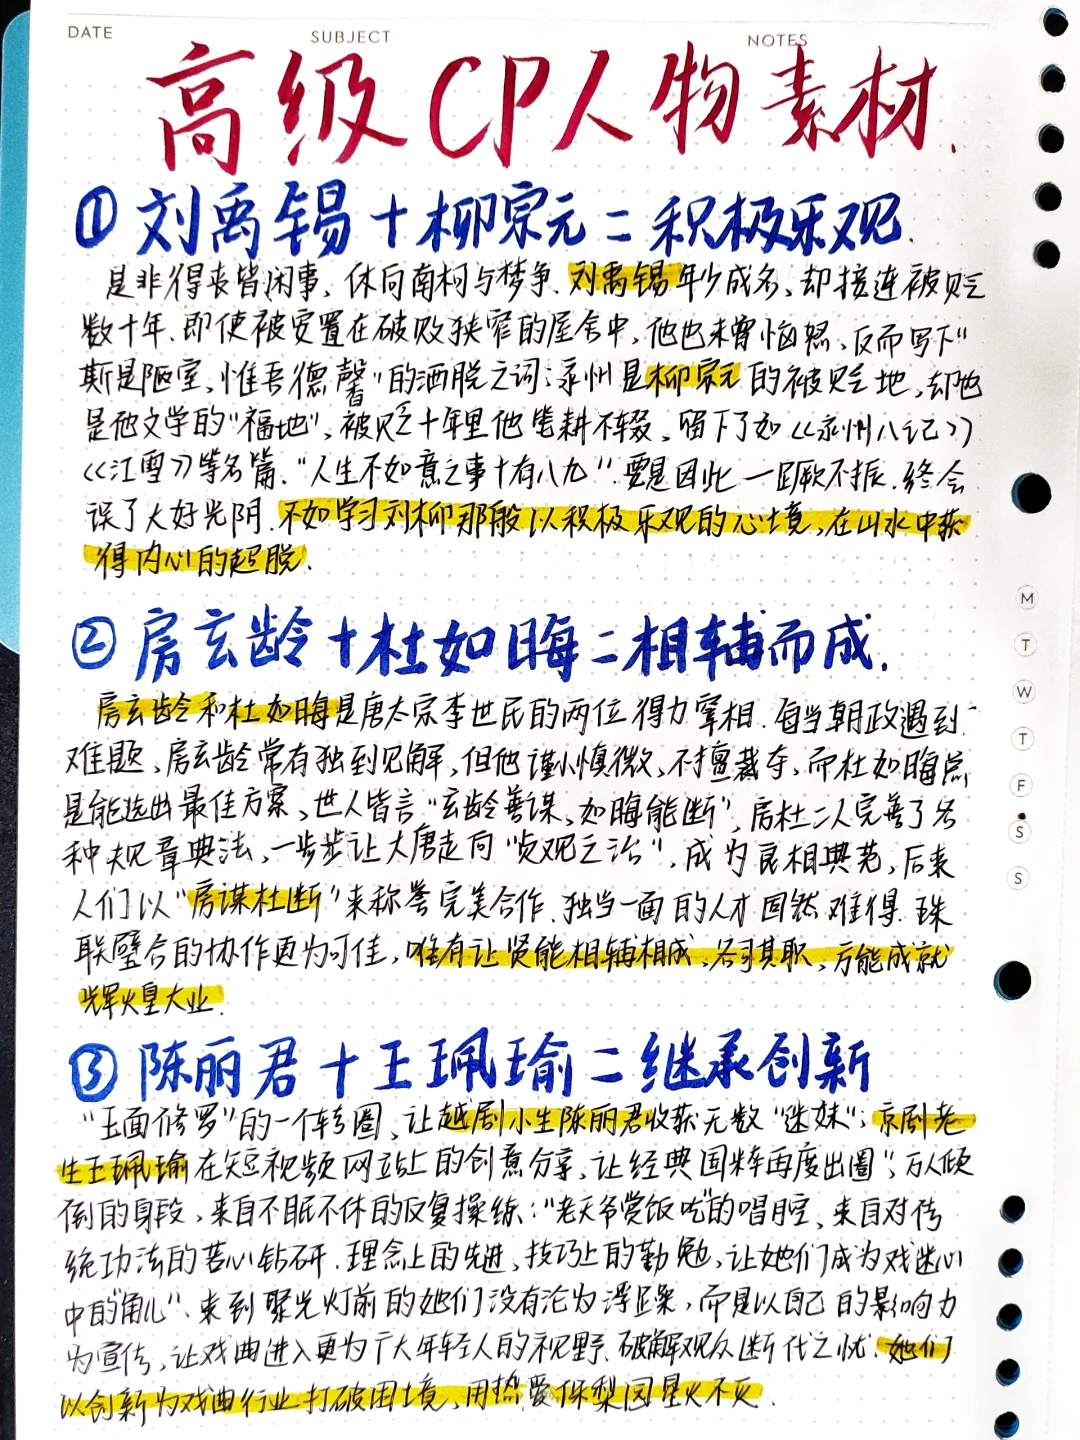 DATE
SUBJECT
NOTES
高级CP人物素材.
①刘禹锡+柳宗元=积极乐观.
是非得丧皆闲事、休向南柯与梦争.刘禹锡年少成名、却接连被贬
数十年.即使被安置在破败狭窄的屋舍中,他也未曾恼怒、反而写下"
斯是陋室,惟吾德馨"的洒脱之词;永州是柳宗元的被贬地,却也
是他文学的"福地",被贬十年里他笔耕不辍、留下了如《永州八记》
《江雪》等名篇."人生不如意之事十有八九".要是因此一蹶不振.终会
误了大好光阴.不如学习刘柳那般以积极乐观的心境,在山水中获
得内心的超脱.
②房玄龄+杜如晦=相辅而成.
房玄龄和杜如晦是唐太宗李世民的两位得力宰相.每当朝政遇到
难题、房玄龄常有独到见解,但他谨小慎微、不擅裁夺,而杜如晦总
是能选出最佳方案、世人皆言"玄龄善谋、如晦能断",房杜二人完善了各
种规章典法、一步步让大唐走向"贞观之治",成为良相典范,后来
人们以"房谋杜断"来称誉完美合作.独当一面的人才固然难得.珠
联璧合的协作更为可佳,唯有让贤能相辅相成、各司其职,方能成就
辉煌大业.
③陈丽君+王珮瑜=继承创新
"玉面修罗"的一个转圈、让越剧小生陈丽君收获无数"迷妹";京剧老
生王珮瑜在短视频网站上的创意分享,让经典国粹再度出圈";万人倾
倒的身段、来自不眠不休的反复操练:"老天爷赏饭吃"的唱腔、来自对传
统功法的苦心钻研.理念上的先进、技巧上的勤勉,让她们成为戏迷心
中的"角儿".来到聚光灯前的她们没有沦为浮躁,而是以自己的影响力
为宣传,让戏曲进入更为广大年轻人的视野.破解观众断代之忧.她们
以创新为戏曲行业打破困境、用热爱保梨园星火不灭.
M
T
W
T
F
S
S